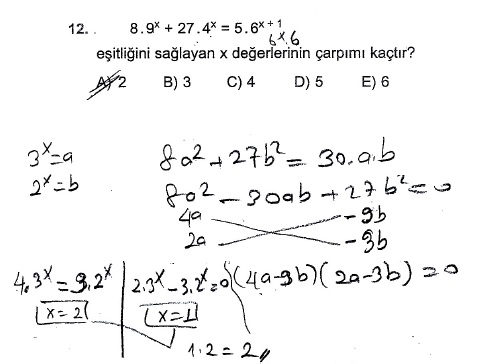 12. 8.9ˣ + 27.4ˣ = 5.6ˣ⁺¹
6ˣ.6
eşitliğini sağlayan x değerlerinin çarpımı kaçtır?
A) 2 B) 3 C) 4 D) 5 E) 6
3ˣ=a 8a²+27b²=30.a.b
2ˣ=b 8a²-30ab+27b²=0
4a -9b
2a -3b
4.3ˣ=9.2ˣ 2.3ˣ-3.2ˣ=0 (4a-9b)(2a-3b)=0
x=2 x=1
1.2=2